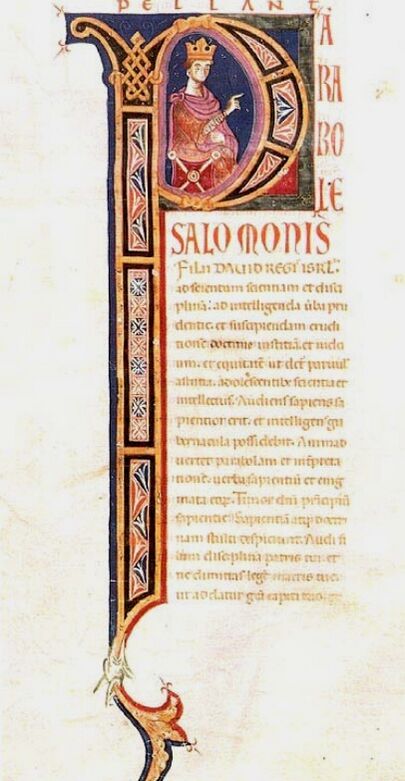 PELLANT
PARA
BO
LE
SALOMONIS
FILII DAUID REGIS ISRL.
ad sciendam scientiam et disci
plinā: ad intelligenda ūba pru
dentie. et suscipiendam erudi
tionē doctrine. iustitiā. et iudici
um. et equitatē ut det̄ paruul'
astutia. adolescentib; scientia et
intellectus. Audiens sapiens sa
pientior erit. et intelligens gu
bernacula possidebit. Animad
uertet parabolam et inťpreta
tionē. uerba sapientiū et enig
mata eoꝝ. Timor dn̄i principiū
sapientie. Sapientiā atq; doctri
nam stulti despiciunt. Audi fi
li mi disciplinā patris tui. et
ne dimittas legē matris tue.
ut addatur grā capiti tuo